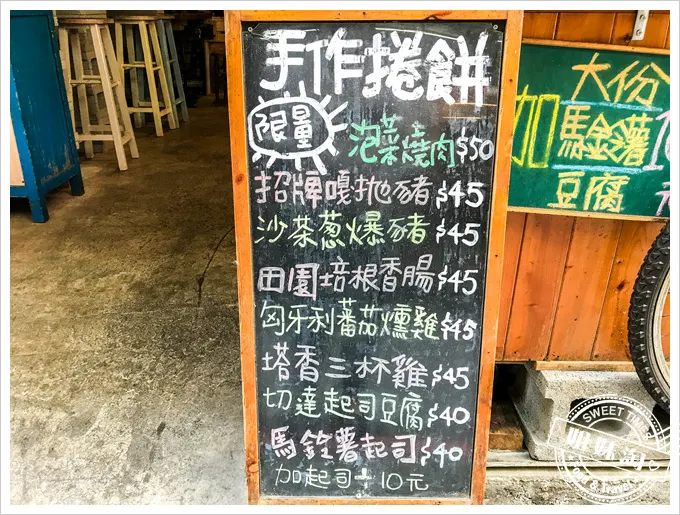 手作捲餅
限量
泡菜燒肉$50
招牌嘎拋豬$45
沙茶蔥爆豬$45
田園培根香腸$45
匈牙利蕃茄燻雞$45
塔香三杯雞$45
切達起司豆腐$40
馬鈴薯起司$40
加起司+10元
大份
加 馬鈴薯 1
豆腐 元
SWEET TIME
Food & Travel